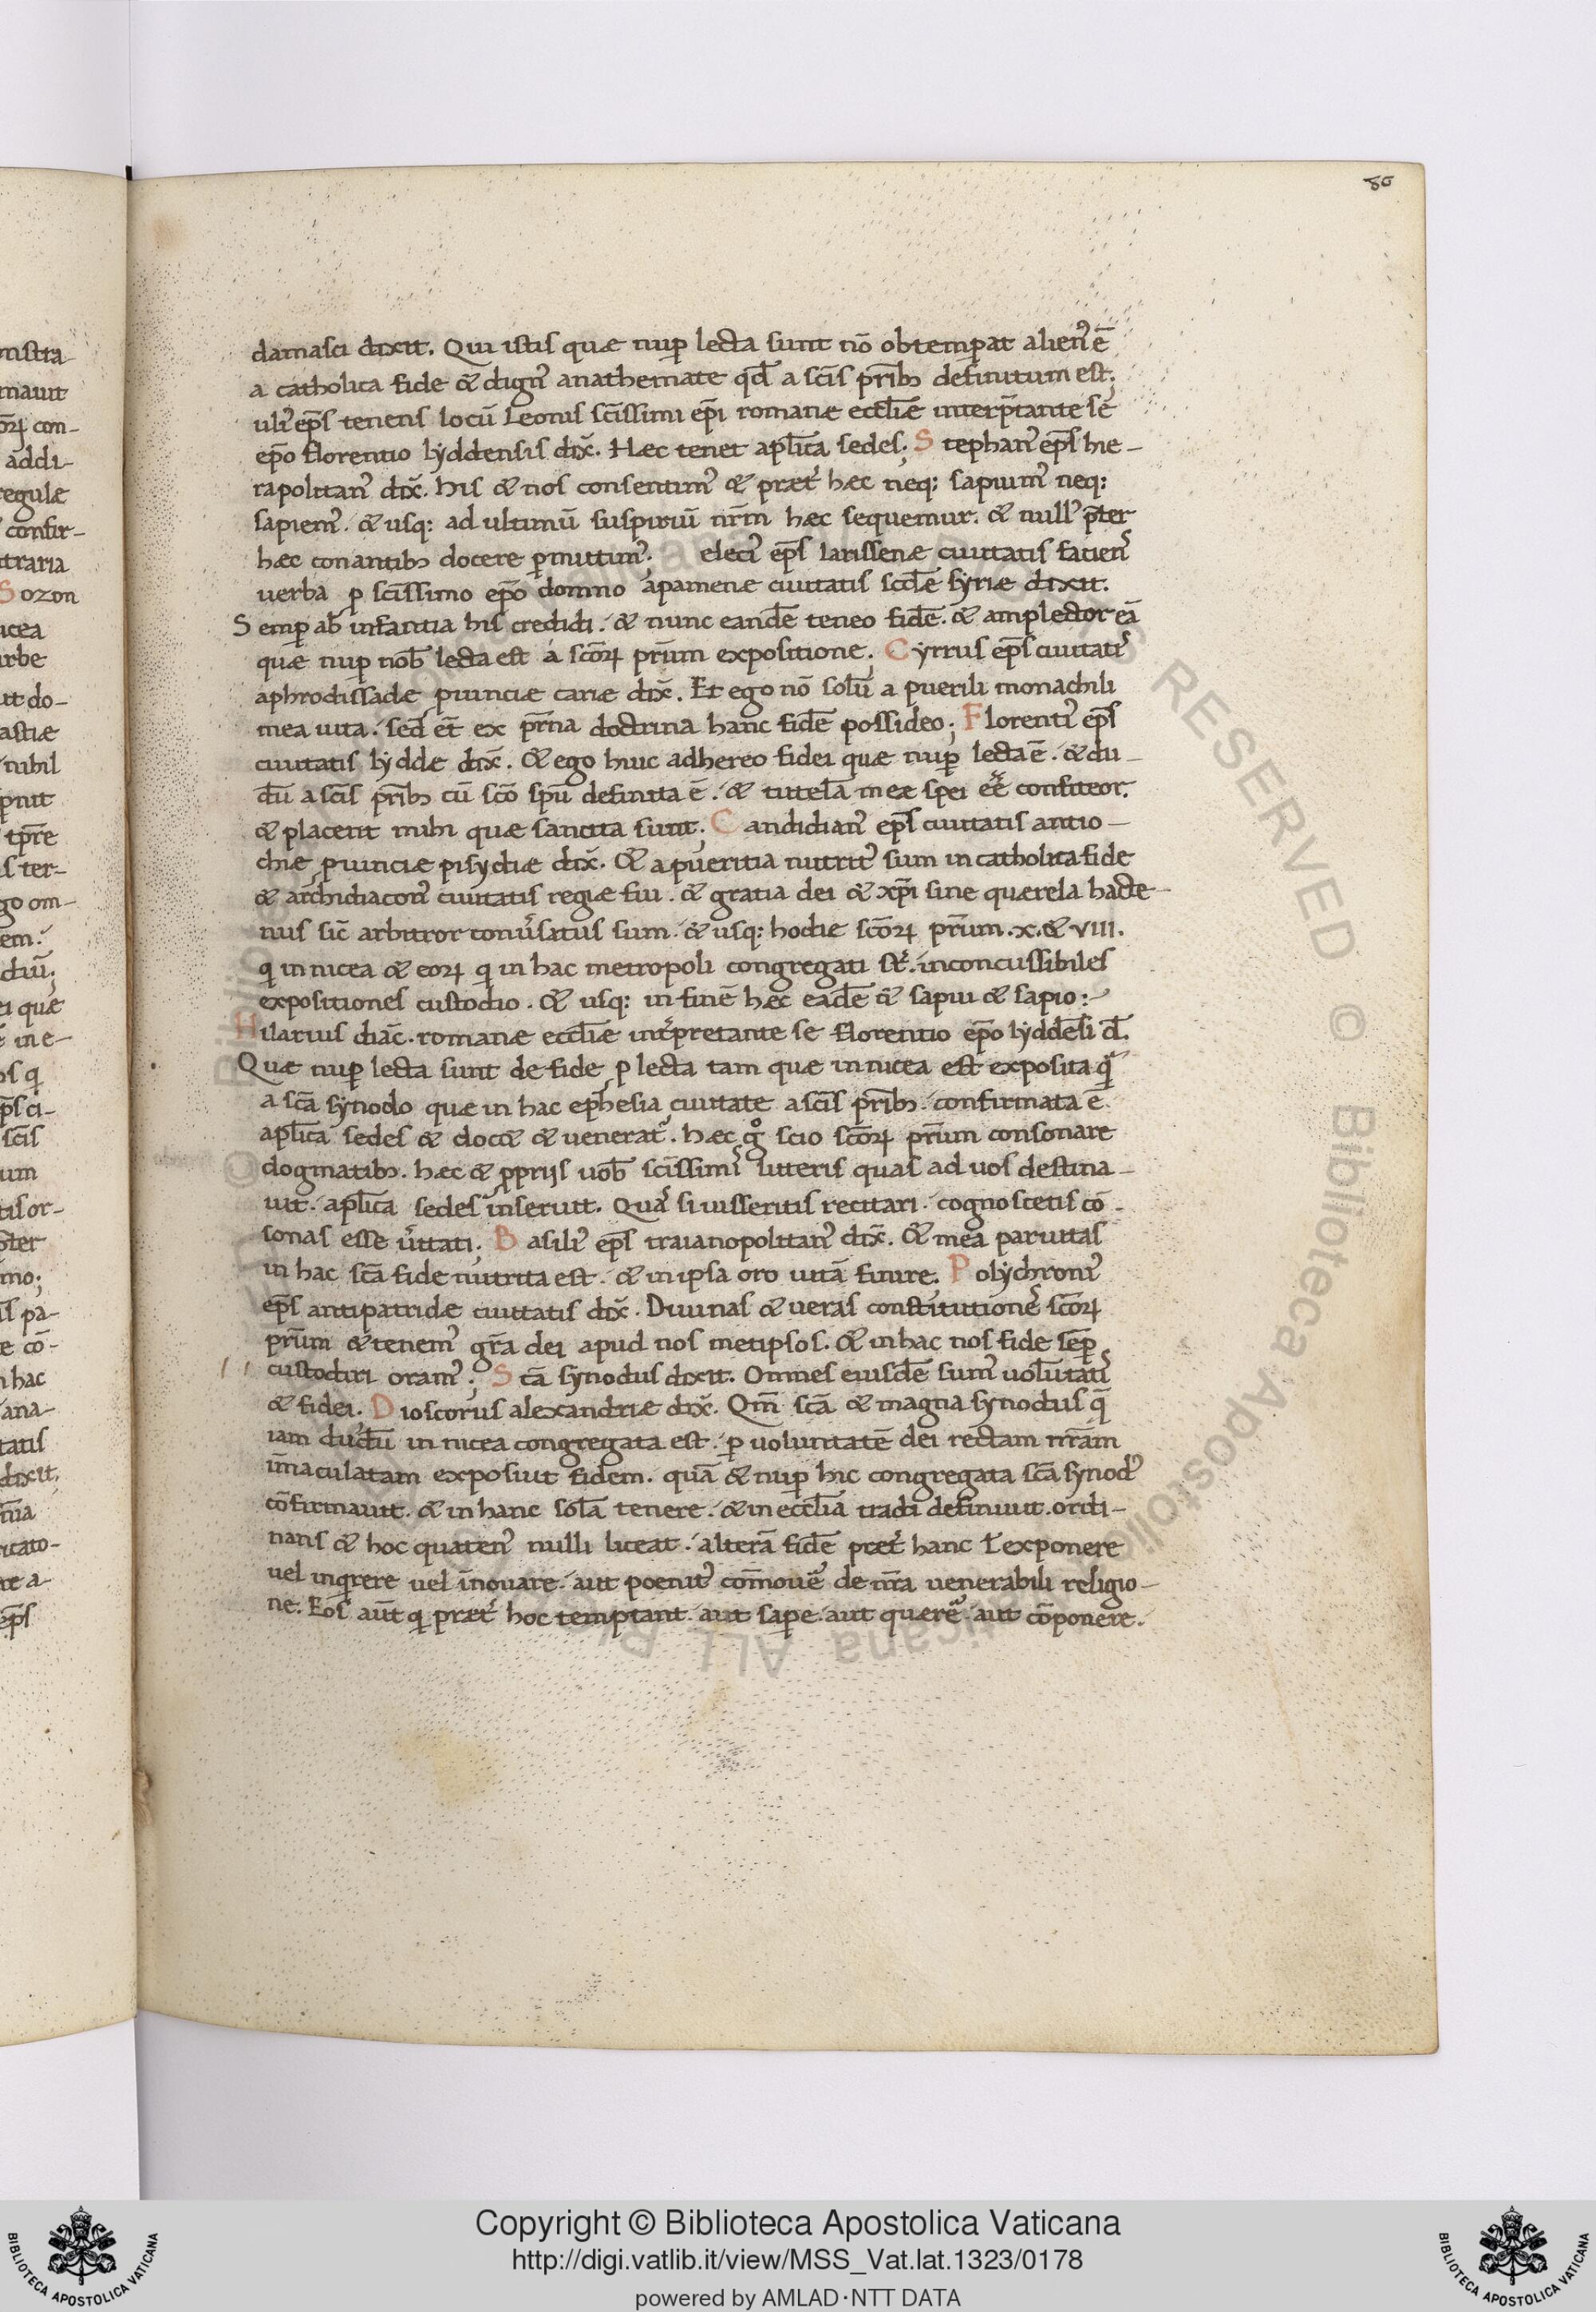 80
damasci dixit. Qui istis quæ nuꝑ lecta sunt nō obtemꝑat alien᷒ ē
a catholica fide & dign᷒ anathemate qd̄ a scīs prīb; definitum est;
uli᷒ ep̄s tenens locū Leonis scīssimi ep̄i romanæ eccl̄iæ interp̄tante se
ep̄o florentio lyddensis dix̄. Hæc tenet apl̄ica sedes; Stephan᷒ ep̄s hie-
rapolitan᷒ dix̄. his & nos consentim᷒ & præt̄ hæc neq; sapuim᷒ neq;
sapiem᷒. & usq; ad ultimū suspiriū nr̄m hæc sequemur. & null᷒ p̄ter
hæc conantib; docere ꝑmittim᷒; eleci᷒ ep̄s larissenæ ciuitatis faciens
uerba ꝓ scīssimo ep̄o domno apamenæ ciuitatis scd̄e syriæ dixit.
Semꝑ ab infantia his credidi. & nunc eandē teneo fidē. & amplector eā
quæ nuꝑ nob̄ lecta est a scōꝝ prūm expositione. Cyrrus ep̄s ciuitatis
aphrodissadæ ꝓuinciæ cariæ dix̄. Et ego nō solū a puerili monachili
mea uita. sed et̄ ex pr̄na doctrina hanc fidē possideo; Florenti᷒ ep̄s
ciuitatis lyddæ dix̄. & ego huic adhereo fidei quæ nuꝑ lecta ē. & du-
dū a scīs prīb; cū scō spū definita ē. & tutelā meæ spei eē confiteor.
& placent mihi quæ sancita sunt. Candidian᷒ ep̄s ciuitatis antio-
chiæ ꝓuinciæ pisydiæ dix̄. & a pueritia nutrit᷒ sum in catholica fide
& archidiacon᷒ ciuitatis regiæ fui. & gratia dei & xp̄i sine quærela hacte-
nus sic̄ arbitror conu̓satus sum. & usq; hodie scōꝝ prūm .x.&.VIII.
q̄ in nicea & eoꝝ q̄ in hac metropoli congregati st̄. inconcussibiles
expositiones custodio. & usq; in finē hæc eadē & sapui & sapio:
Hilarius diac̄. romanæ eccl̄iæ int̄pretante se florentio ep̄o lyddēsi d̄.
Quæ nuꝑ lecta sunt de fide ꝑlecta tam quæ in nicea est exposita q̄
a scā synodo quæ in hac ephesia ciuitate a scīs prīb; confirmata ē.
apl̄ica sedes & doc& & uenerat᷒. hæc g̊ scio scōꝝ prūm consonare
dogmatib;. hæc & ꝓprijs uob̄ scīssimi litteris quas ad uos destina-
uit. apl̄ica sedes inseruit. Quas si iusseritis recitari. cognoscetis cō-
sonas esse u̓itati; Basili᷒ ep̄s traianopolitan᷒ dix̄. & mea paruitas
in hac scā fide nutrita est. & in ipsa oro uitā finire. Polychroni᷒
ep̄s antipatridæ ciuitatis dix̄. Diuinas & ueras constitutiones scōꝝ
prūm & tenem᷒ gr̄a dei apud nos metipsos. & in hac nos fide sēꝑ
custodiri oram᷒; Scā synodus dixit. Omnes eiusdē sum᷒ uolūtatis
& fidei. Dioscorus alexandriæ dix̄. Qm̄ scā & magna synodus q̄
iam dudū in nicea congregata est. ꝑ uoluntatē dei rectam nr̄am
im̄aculatam exposiuit fidem. quā & nuꝑ hic congregata scā synod᷒
cōfirmauit. & in hanc solā tenere. & in eccl̄ia tradi definiuit. ordi-
nans & hoc quaten᷒ nulli liceat. alterā fidē præt̄ hanc ł exponere
uel inqrere uel in̄ouare. aut poenit᷒ com̄ouē de nr̄a uenerabili religio-
ne. Eos aut̄ q̄ præt̄ hoc temptant. aut sapere. aut querere. aut cōponere.
Copyright © Biblioteca Apostolica Vaticana
http://digi.vatlib.it/view/MSS_Vat.lat.1323/0178
powered by AMLAD·NTT DATA